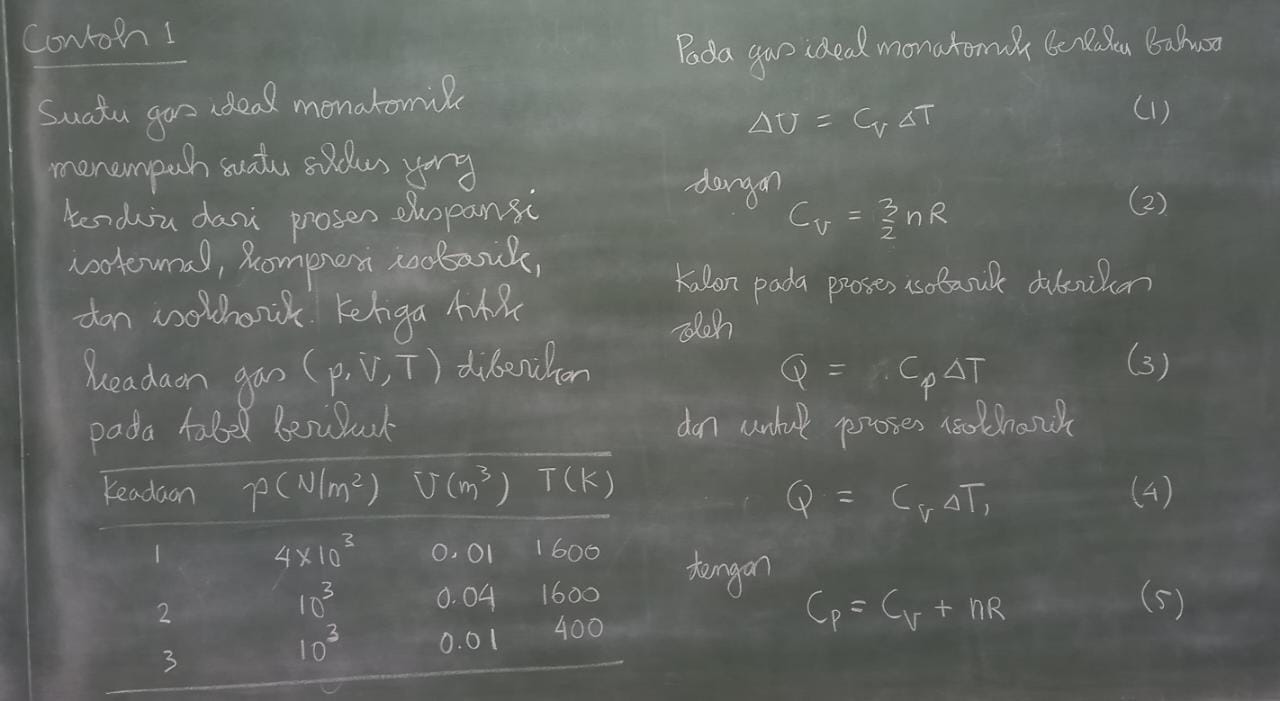 Contoh 1
Suatu gas ideal monatomik
menempuh suatu siklus yang
terdiri dari proses ekspansi
isotermal, kompresi isobarik,
dan isokhorik. Ketiga titik
keadaan gas (p, V, T) diberikan
pada tabel berikut
Keadaan p(N/m²) V(m³) T(K)
1 4×10³ 0.01 1600
2 10³ 0.04 1600
3 10³ 0.01 400
Pada gas ideal monatomik berlaku bahwa
ΔU = C_V ΔT (1)
dengan
C_V = 3/2 nR (2)
Kalor pada proses isobarik diberikan
oleh
Q = C_p ΔT (3)
dan untuk proses isokhorik
Q = C_V ΔT, (4)
dengan
C_p = C_V + nR (5)